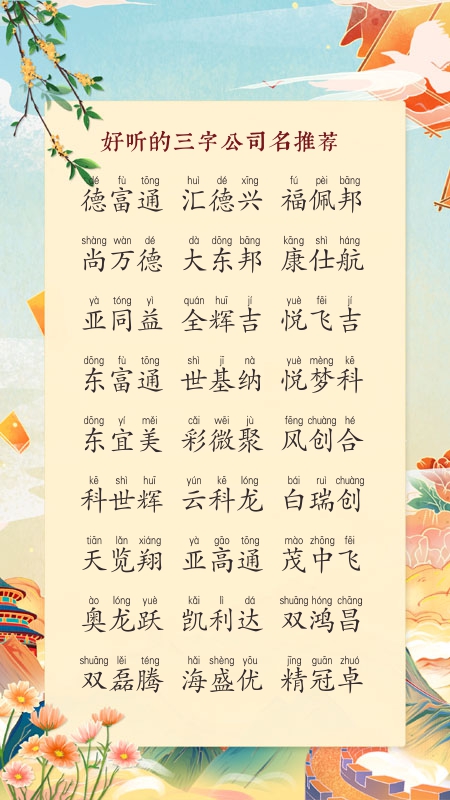 好听的三字公司名推荐
dé fù tōng huì dé xīng fú pèi bāng
德富通 汇德兴 福佩邦
shàng wàn dé dà dōng bāng kāng shì háng
尚万德 大东邦 康仕航
yà tóng yì quán huī jí yuè fēi jí
亚同益 全辉吉 悦飞吉
dōng fù tōng shì jī nà yuè mèng kē
东富通 世基纳 悦梦科
dōng yí měi cǎi wēi jù fēng chuàng hé
东宜美 彩微聚 风创合
kē shì huī yún kē lóng bái ruì chuàng
科世辉 云科龙 白瑞创
tiān lǎn xiáng yà gāo tōng mào zhōng fēi
天览翔 亚高通 茂中飞
ào lóng yuè kǎi lì dá shuāng hóng chāng
奥龙跃 凯利达 双鸿昌
shuāng lěi téng hǎi shèng yōu jīng guān zhuó
双磊腾 海盛优 精冠卓